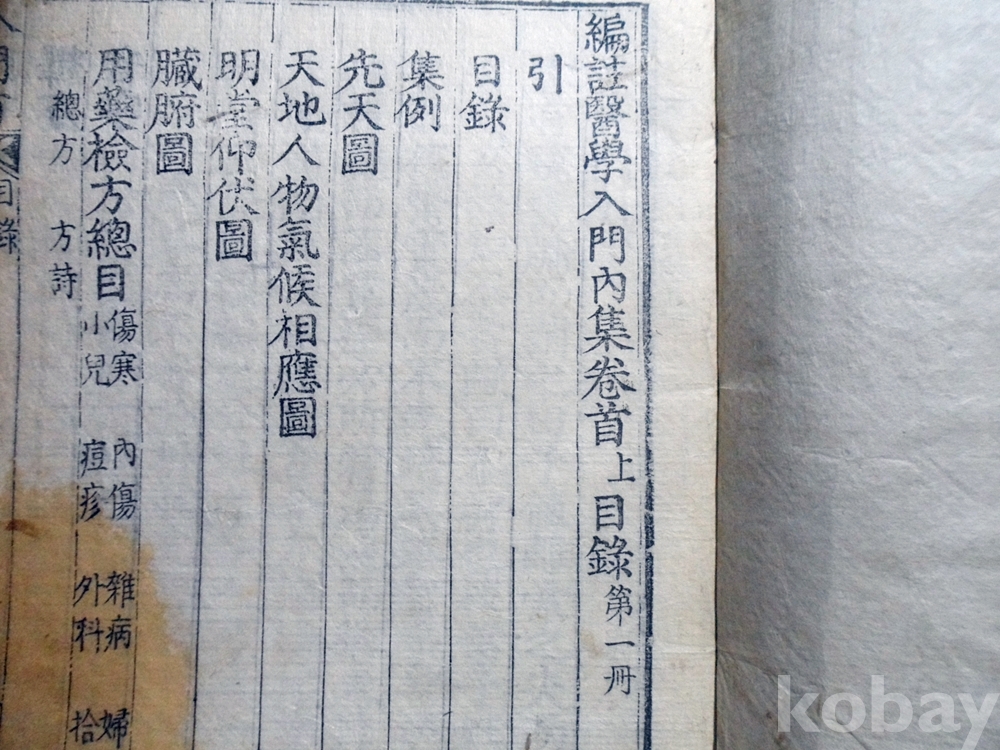 編註醫學入門內集卷首上目錄第一冊
引
目錄
集例
先天圖
天地人物氣候相應圖
明堂仰伏圖
臟腑圖
用藥檢方總目
傷寒 內傷 雜病 婦
小兒 痘疹 外科 拾
總方 方詩
目錄
kobay